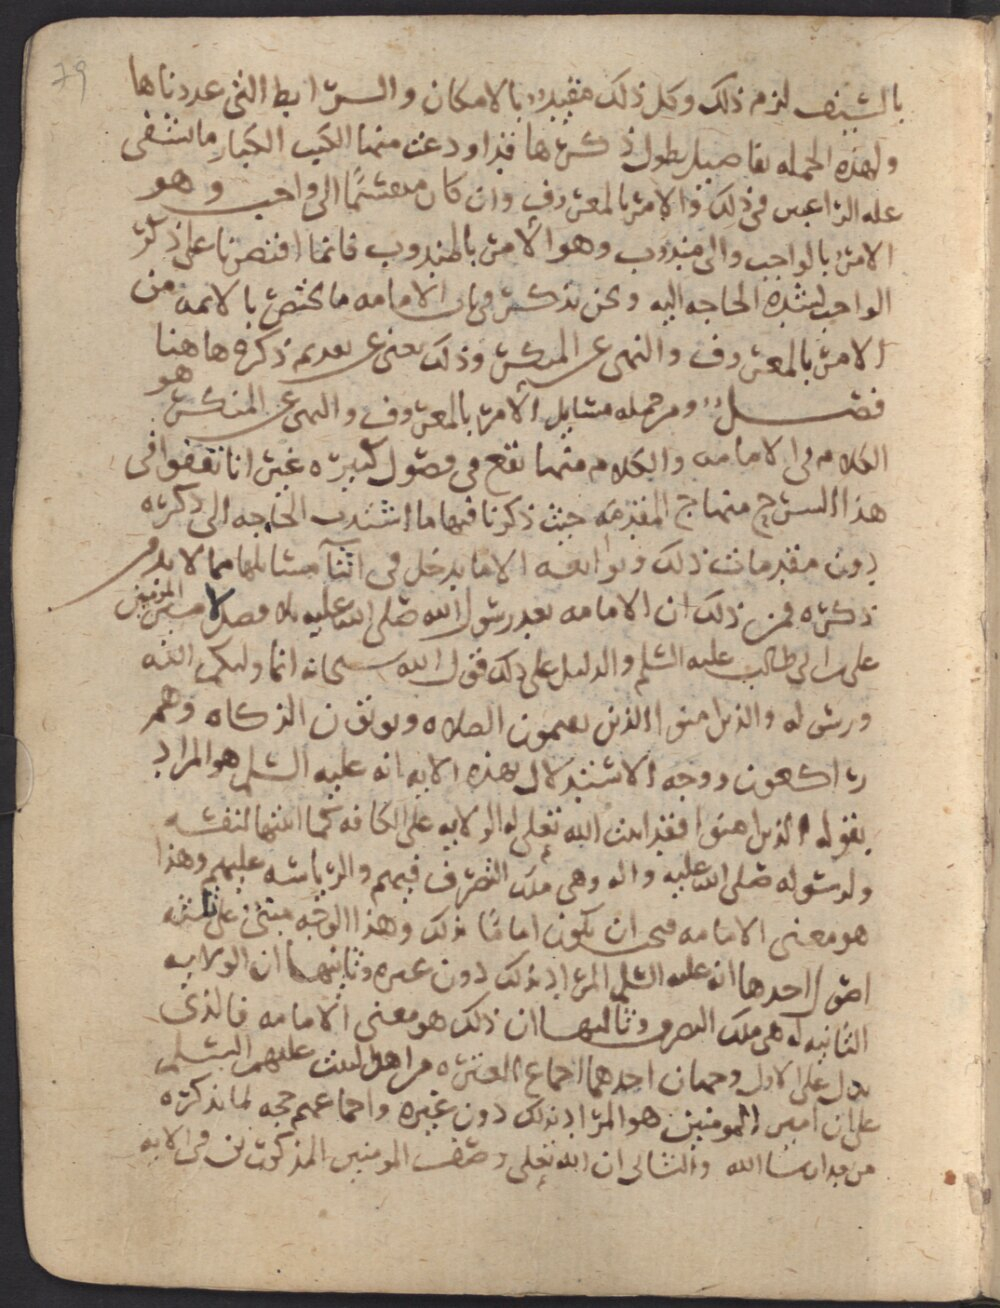 79
بالسيف لزم ذلك وكل ذلك مقيد بالامكان والشرايط التي عددناها
ولهذه الجمله تفاصيل يطول ذكرها قد اودعت منها الكتب الكبار ما يشفي
عله الراغبين في ذلك والامر بالمعروف وان كان منقسمًا الى واجب وهو
الامر بالواجب والى مندوب وهو الأمر بالمندوب فانما اقتصرنا على ذكر
الواجب لشدة الحاجه اليه ونحن نذكر في باب الامامه ما يختص بالائمه من
الامر بالمعروف والنهي عن المنكر وذلك يغني عن تقديم ذكره هاهنا
فصل ومن جمله مسايل الأمر بالمعروف والنهي عن المنكر هو
الكلام في الامامه والكلام منها يقع في فصول كثيره غير انا نقفوا في
هذا الشرح منهاج المقدمه حيث ذكرنا فيها ما اشتدت الحاجه الى ذكره
دون مقدمات ذلك وتوابعه الا ما يدخل في اثنآ مسائلها مما لا بد من
ذكره فمن ذلك ان الامامه بعد رسول الله صلى الله عليه بلا فصل لامير المومنين
علي بن ابي طالب عليه السلم والدليل على ذلك قول الله سبحانه انما وليكم الله
ورسوله والذين امنوا الذين يقيمون الصلاه ويوتون الزكاه وهم
راكعون ووجه الاستدلال بهذه الايه انه عليه السلم هو المراد
بقوله الذين امنوا فقد اثبت الله تعلى له الولايه على الكافه كما اثبتها لنفسه
ولرسوله صلى الله عليه واله وهي ملك التصرف فيهم والرياسه عليهم وهذا
هو معنى الامامه فيجب ان يكون امامًا بذلك وهذا الوجه مبني على ثلثه
اصول احدها انه عليه السلم المراد بذلك دون غيره وثانيها ان الولايه
الثابته له هي ملك التصرف وثالثها ان ذلك هو معنى الامامه فالذي
يدل على الاول وجهان احدهما اجماع العتره من اهل البيت عليهم السلم
على ان امير المومنين هو المراد بذلك دون غيره واجماعهم حجه لما نذكره
من بعد ان شا الله والثاني ان الله تعلى وصف المومنين المذكورين في الايه